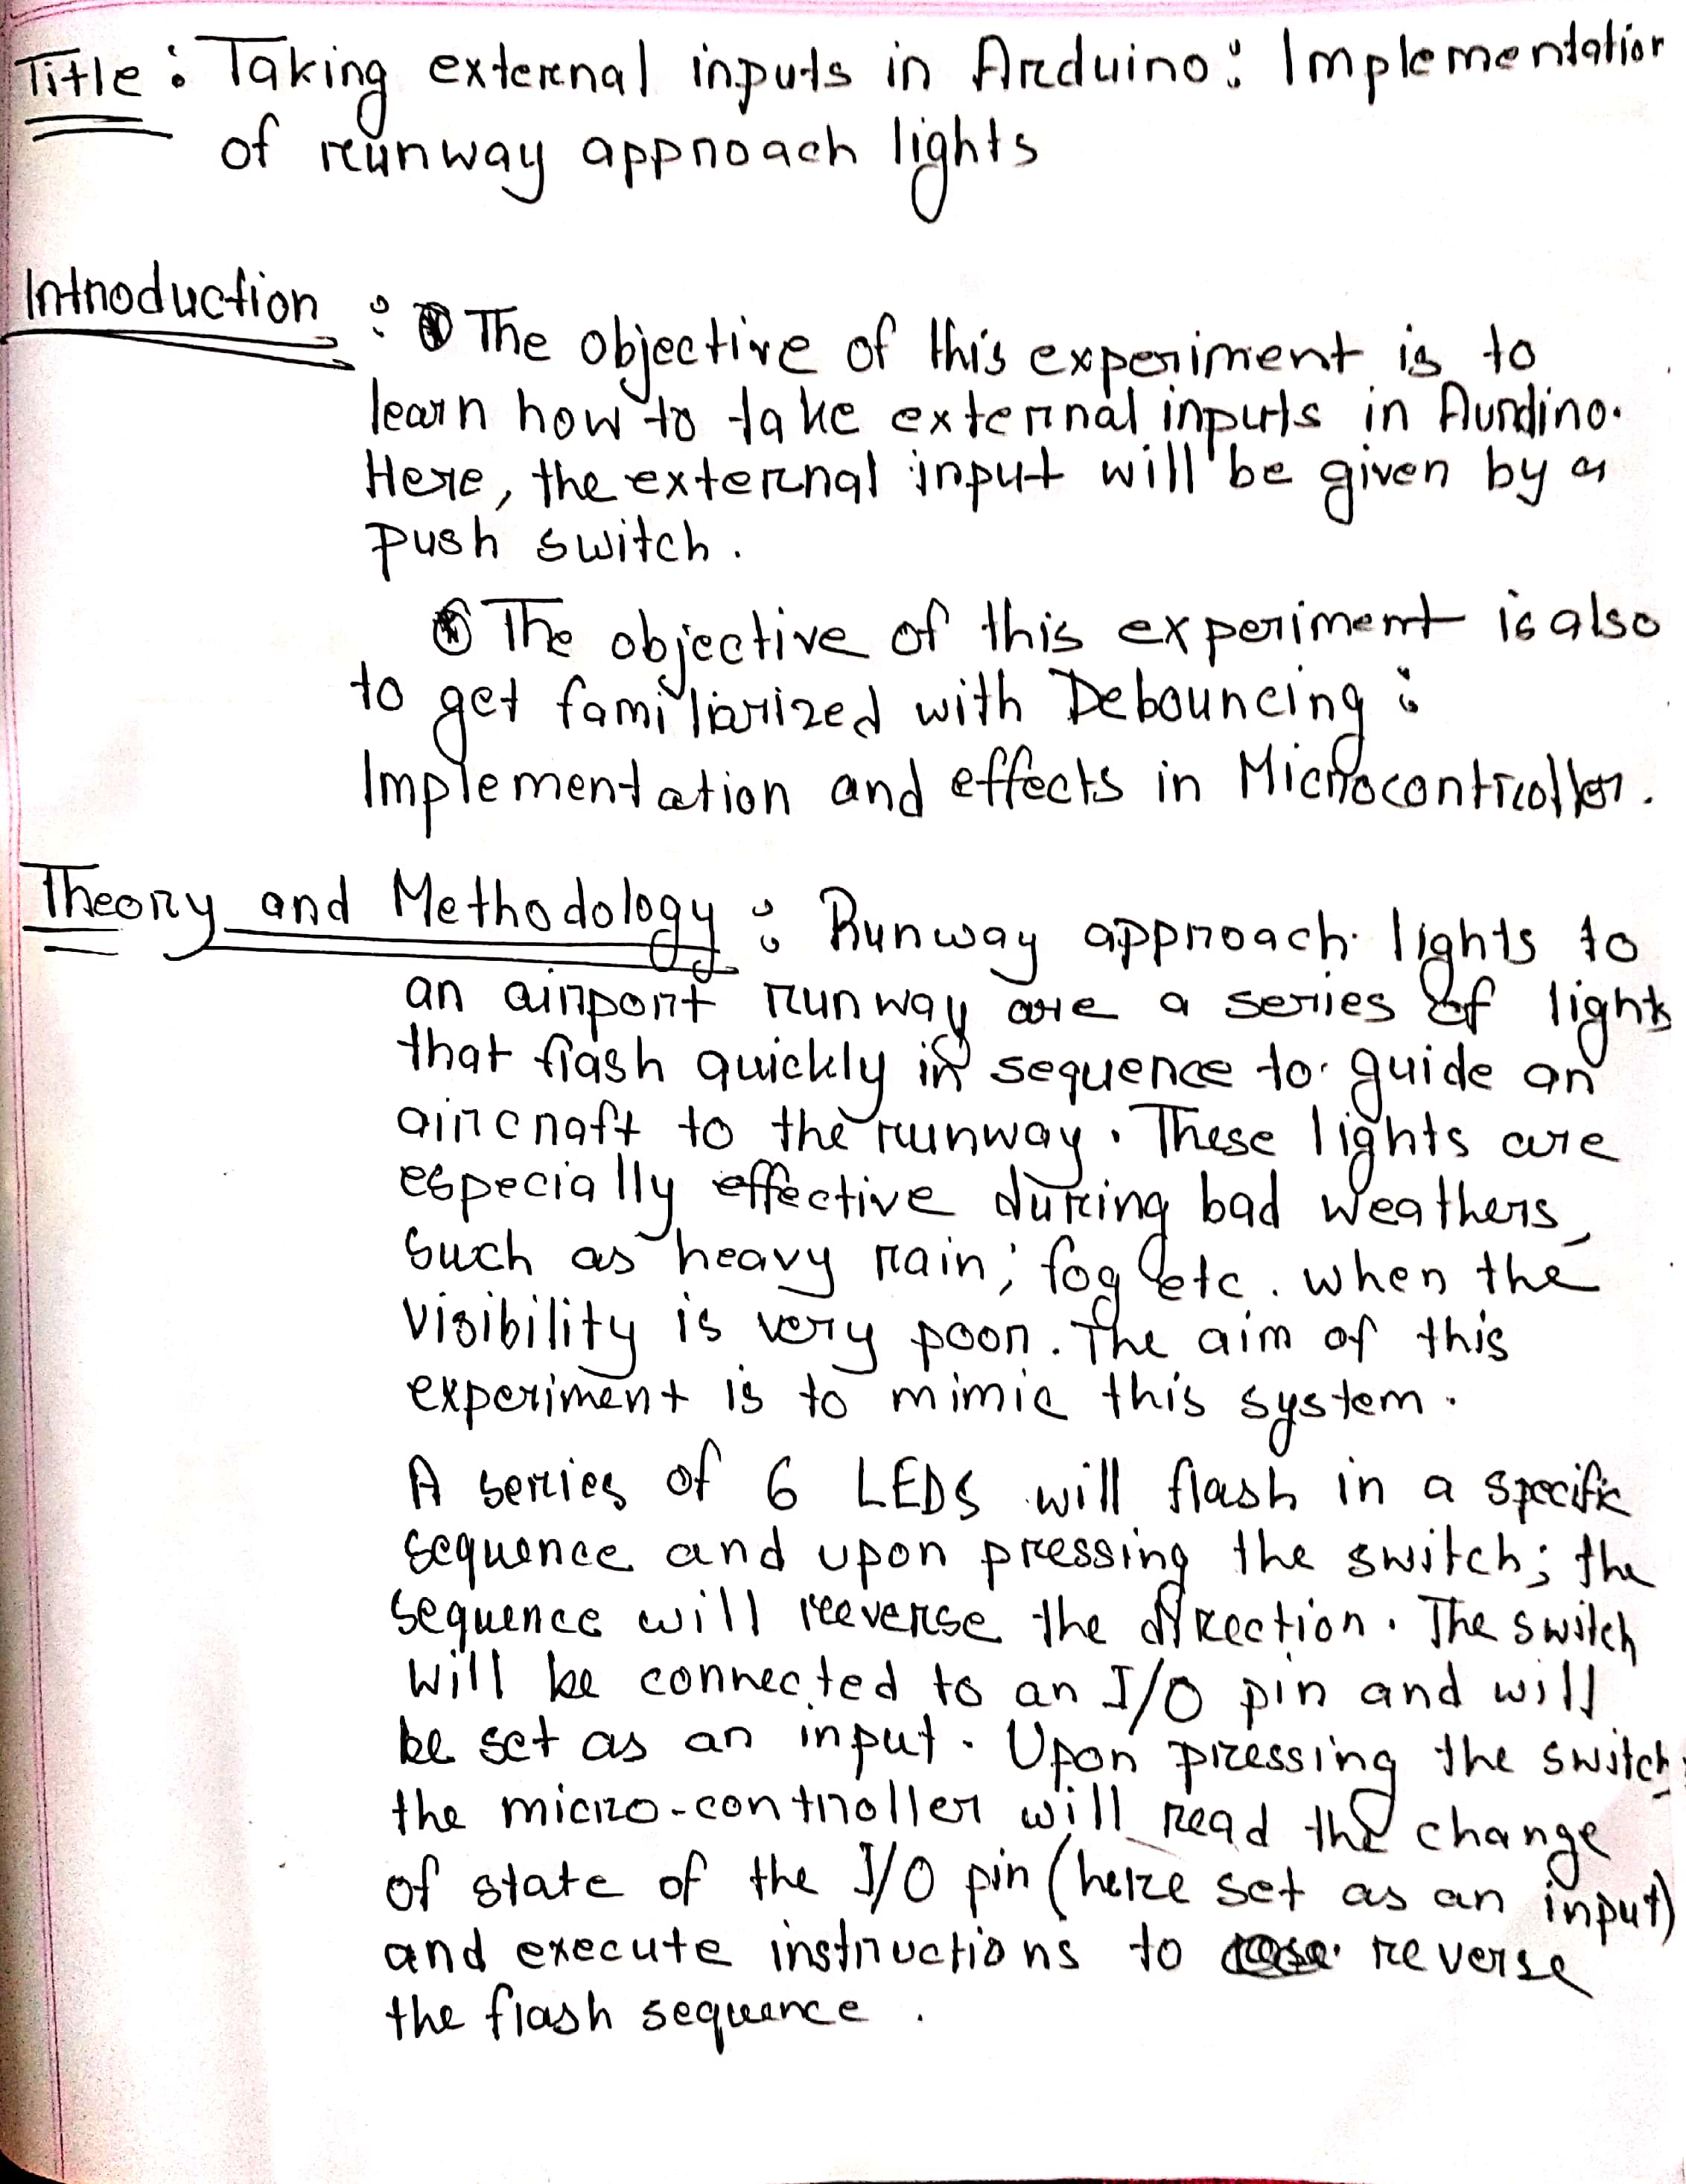 Title : Taking external inputs in Arduino : Implementation
of runway approach lights
Introduction : The objective of this experiment is to
learn how to take external inputs in Aurdino.
Here, the external input will be given by a
push switch.
The objective of this experiment is also
to get familiarized with Debouncing :
Implementation and effects in Microcontroller.
Theory and Methodology : Runway approach lights to
an airport runway are a series of lights
that flash quickly in sequence to guide an
aircraft to the runway. These lights are
especially effective during bad weathers,
such as heavy rain, fog etc. when the
visibility is very poor. The aim of this
experiment is to mimic this system.
A series of 6 LEDS will flash in a specific
sequence and upon pressing the switch; the
sequence will reverse the direction. The switch
will be connected to an I/O pin and will
be set as an input. Upon pressing the switch,
the micro-controller will read the change
of state of the I/O pin (here set as an input)
and execute instructions to reverse
the flash sequence.